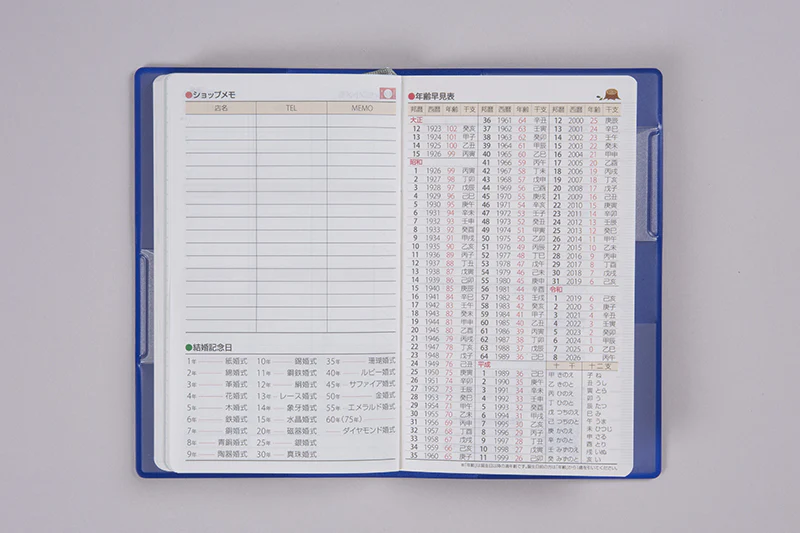 ●ショップメモ
店名 TEL MEMO
●結婚記念日
1年 紙婚式
2年 綿婚式
3年 革婚式
4年 花婚式
5年 木婚式
6年 鉄婚式
7年 銅婚式
8年 青銅婚式
9年 陶器婚式
10年 錫婚式
11年 鋼鉄婚式
12年 絹婚式
13年 レース婚式
14年 象牙婚式
15年 水晶婚式
20年 磁器婚式
25年 銀婚式
30年 真珠婚式
35年 珊瑚婚式
40年 ルビー婚式
45年 サファイア婚式
50年 金婚式
55年 エメラルド婚式
60年(75年)
ダイヤモンド婚式
●年齢早見表
邦暦 西暦 年齢 干支
大正
12 1923 102 癸亥
13 1924 101 甲子
14 1925 100 乙丑
15 1926 99 丙寅
昭和
1 1926 99 丙寅
2 1927 98 丁卯
3 1928 97 戊辰
4 1929 96 己巳
5 1930 95 庚午
6 1931 94 辛未
7 1932 93 壬申
8 1933 92 癸酉
9 1934 91 甲戌
10 1935 90 乙亥
11 1936 89 丙子
12 1937 88 丁丑
13 1938 87 戊寅
14 1939 86 己卯
15 1940 85 庚辰
16 1941 84 辛巳
17 1942 83 壬午
18 1943 82 癸未
19 1944 81 甲申
20 1945 80 乙酉
21 1946 79 丙戌
22 1947 78 丁亥
23 1948 77 戊子
24 1949 76 己丑
25 1950 75 庚寅
26 1951 74 辛卯
27 1952 73 壬辰
28 1953 72 癸巳
29 1954 71 甲午
30 1955 70 乙未
31 1956 69 丙申
32 1957 68 丁酉
33 1958 67 戊戌
34 1959 66 己亥
35 1960 65 庚子
邦暦 西暦 年齢 干支
36 1961 64 辛丑
37 1962 63 壬寅
38 1963 62 癸卯
39 1964 61 甲辰
40 1965 60 乙巳
41 1966 59 丙午
42 1967 58 丁未
43 1968 57 戊申
44 1969 56 己酉
45 1970 55 庚戌
46 1971 54 辛亥
47 1972 53 壬子
48 1973 52 癸丑
49 1974 51 甲寅
50 1975 50 乙卯
51 1976 49 丙辰
52 1977 48 丁巳
53 1978 47 戊午
54 1979 46 己未
55 1980 45 庚申
56 1981 44 辛酉
57 1982 43 壬戌
58 1983 42 癸亥
59 1984 41 甲子
60 1985 40 乙丑
61 1986 39 丙寅
62 1987 38 丁卯
63 1988 37 戊辰
64 1989 36 己巳
平成
1 1989 36 己巳
2 1990 35 庚午
3 1991 34 辛未
4 1992 33 壬申
5 1993 32 癸酉
6 1994 31 甲戌
7 1995 30 乙亥
8 1996 29 丙子
9 1997 28 丁丑
10 1998 27 戊寅
11 1999 26 己卯
邦暦 西暦 年齢 干支
12 2000 25 庚辰
13 2001 24 辛巳
14 2002 23 壬午
15 2003 22 癸未
16 2004 21 甲申
17 2005 20 乙酉
18 2006 19 丙戌
19 2007 18 丁亥
20 2008 17 戊子
21 2009 16 己丑
22 2010 15 庚寅
23 2011 14 辛卯
24 2012 13 壬辰
25 2013 12 癸巳
26 2014 11 甲午
27 2015 10 乙未
28 2016 9 丙申
29 2017 8 丁酉
30 2018 7 戊戌
31 2019 6 己亥
令和
1 2019 6 己亥
2 2020 5 庚子
3 2021 4 辛丑
4 2022 3 壬寅
5 2023 2 癸卯
6 2024 1 甲辰
7 2025 0 乙巳
8 2026 丙午
十干
甲 きのえ
乙 きのと
丙 ひのえ
丁 ひのと
戊 つちのえ
己 つちのと
庚 かのえ
辛 かのと
壬 みずのえ
癸 みずのと
十二支
子 ね
丑 うし
寅 とら
卯 う
辰 たつ
巳 み
午 うま
未 ひつじ
申 さる
酉 とり
戌 いぬ
亥 い